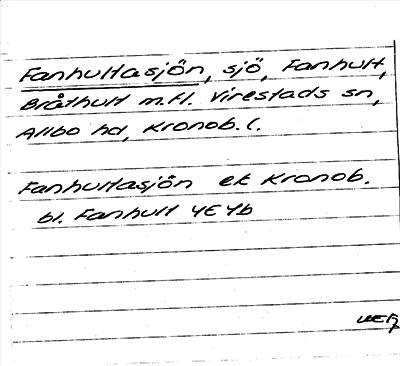 Fanhultasjön, sjö, Fanhult,
Bråthult m.fl. Virestads sn,
Allbo hd, Kronob. l.
Fanhultasjön ek Kronob.
bl. Fanhult 4E4b